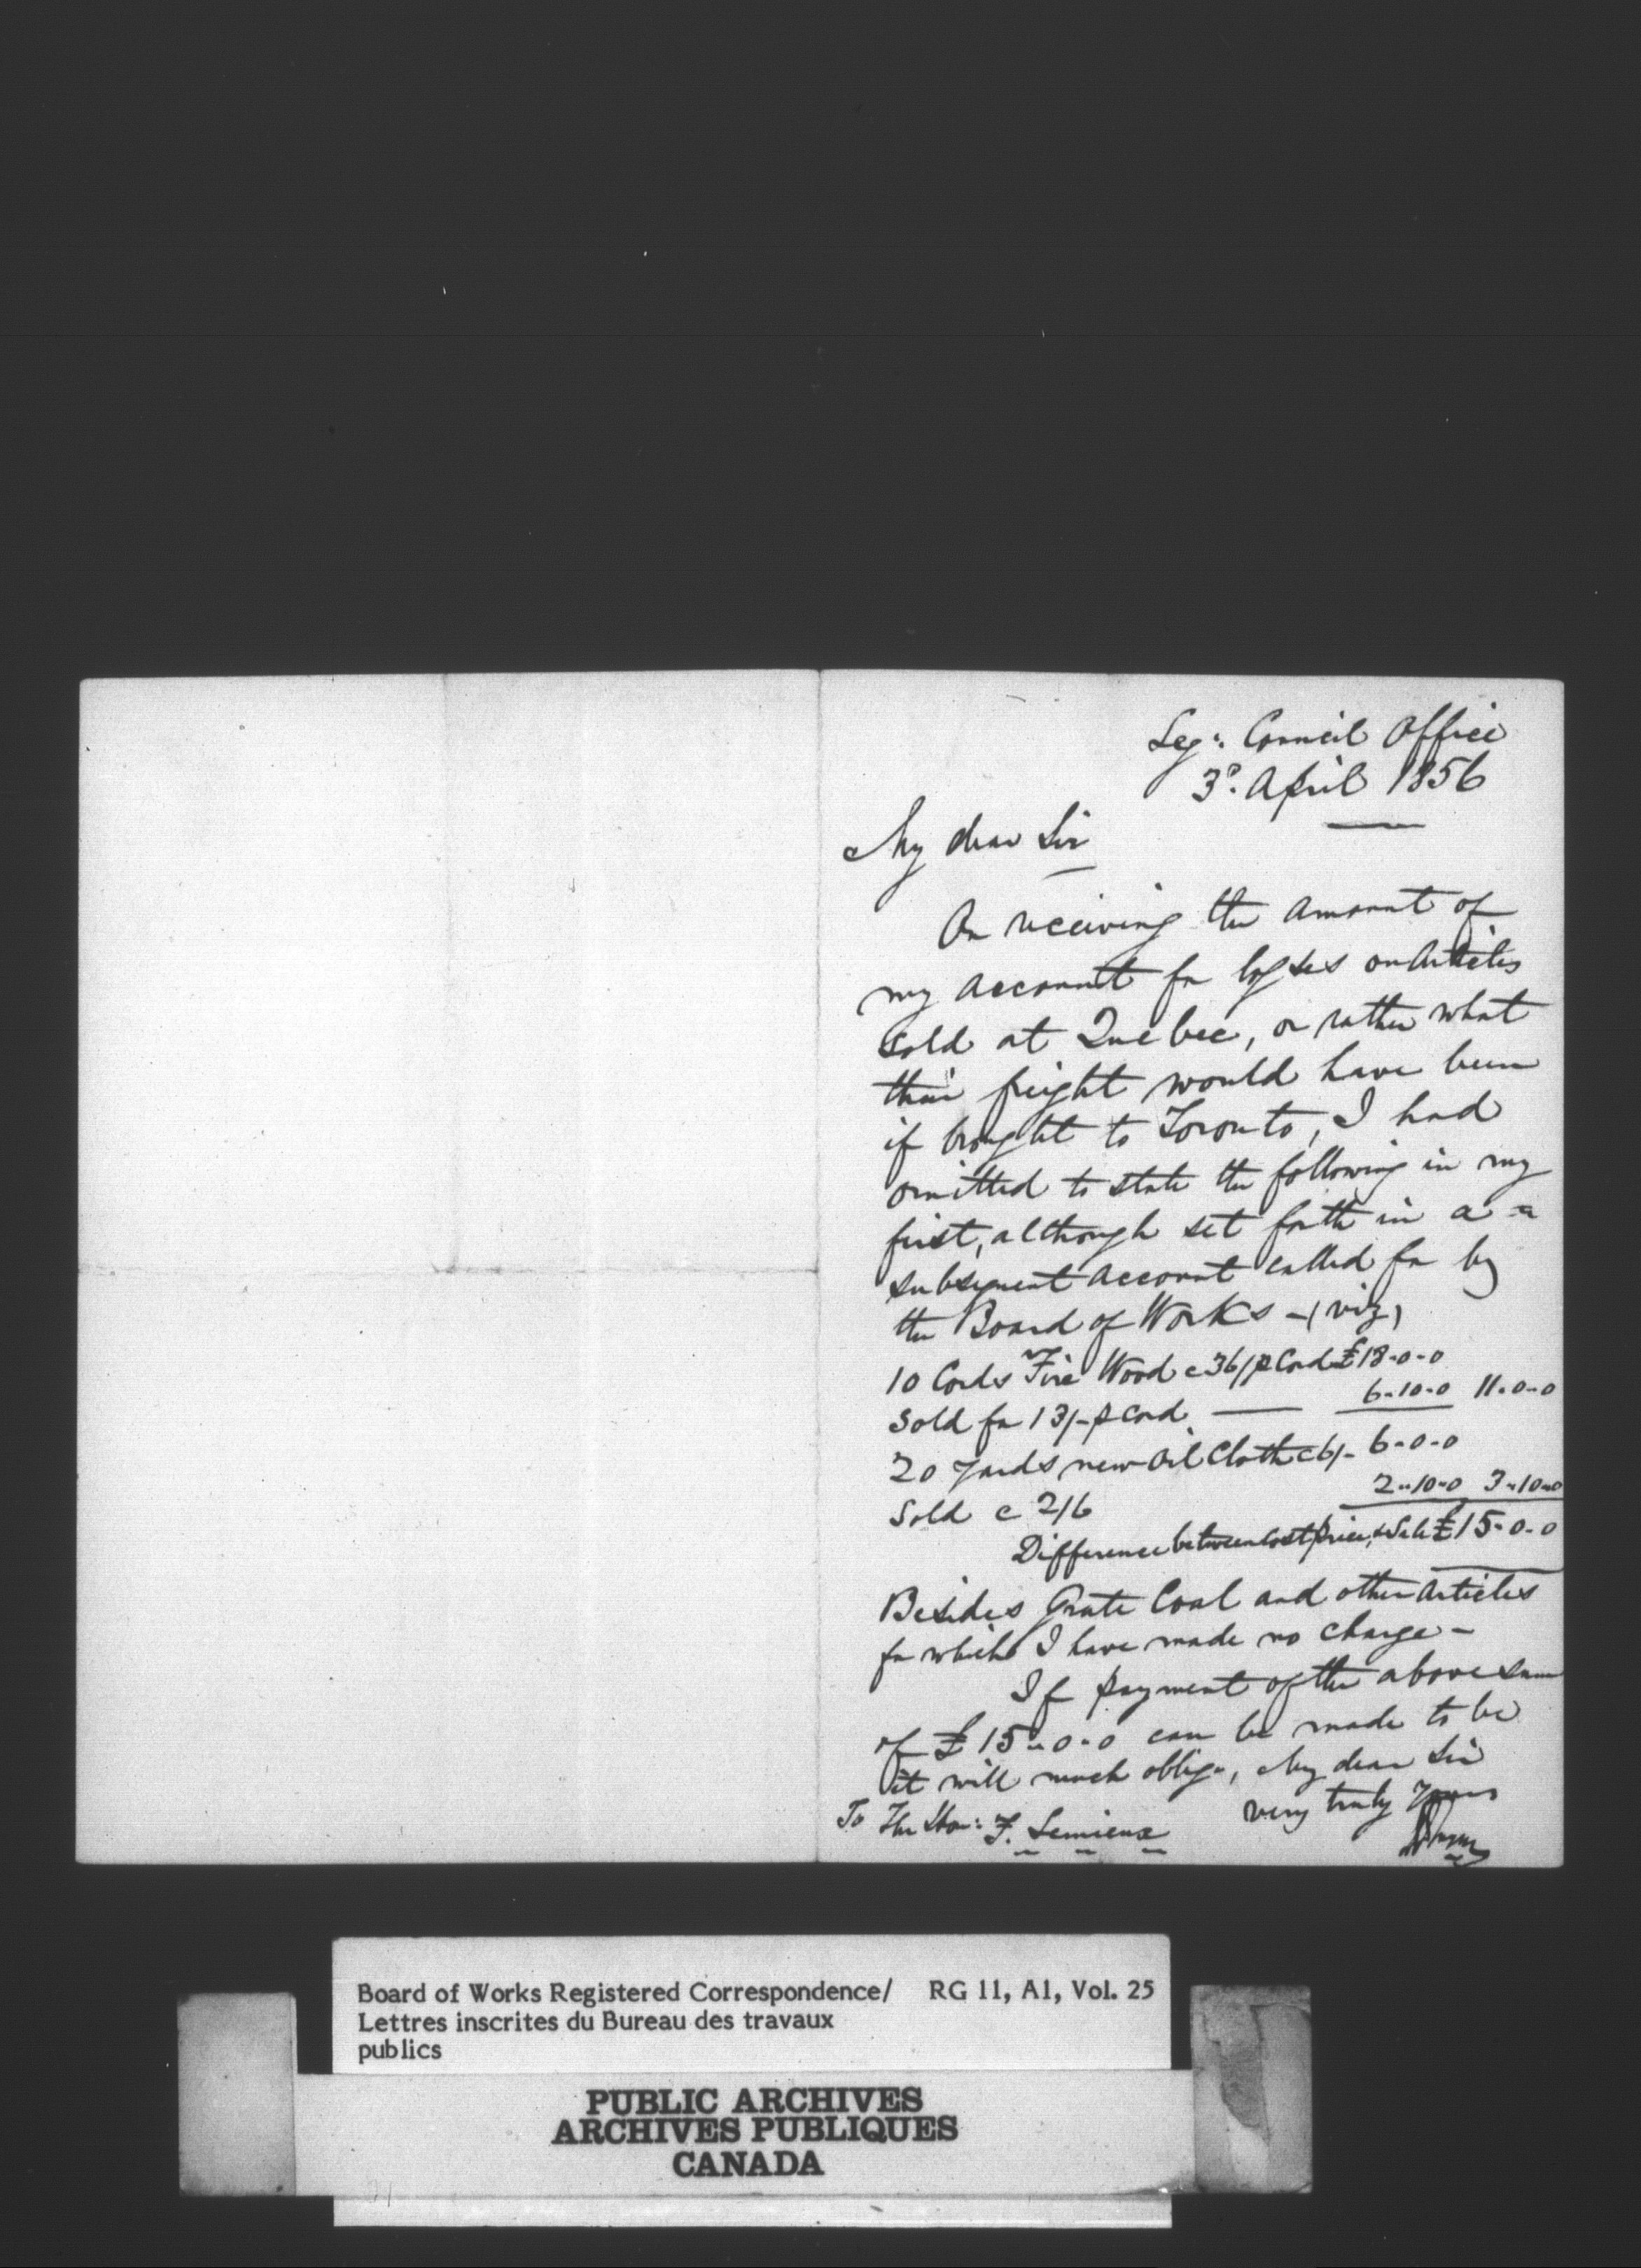 Leg: Council Office
3d. April 1856
My dear Sir
On receiving the amount of
my account for losses on articles
sold at Quebec, or rather what
their freight would have been
if brought to Toronto, I had
omitted to state the following in my
first, although set forth in a
subsequent account called for by
the Board of Works - (viz)
10 Cords Fire Wood @ 36/ p Cord £18-0-0
Sold for 13/- p Cord 6-10-0 11-0-0
20 yards new Oil Cloth @ 6/- 6-0-0
Sold @ 2/6 2-10-0 3-10-0
Difference between Cost price, & Sale £15-0-0
Besides Grate Coal and other articles
for which I have made no charge -
If payment of the above sum
of £15-0-0 can be made to be
it will much oblige, My dear Sir
very truly yours
To The Hon: F. Lemieux
Board of Works Registered Correspondence/ RG 11, A1, Vol. 25
Lettres inscrites du Bureau des travaux
publics
PUBLIC ARCHIVES
ARCHIVES PUBLIQUES
CANADA